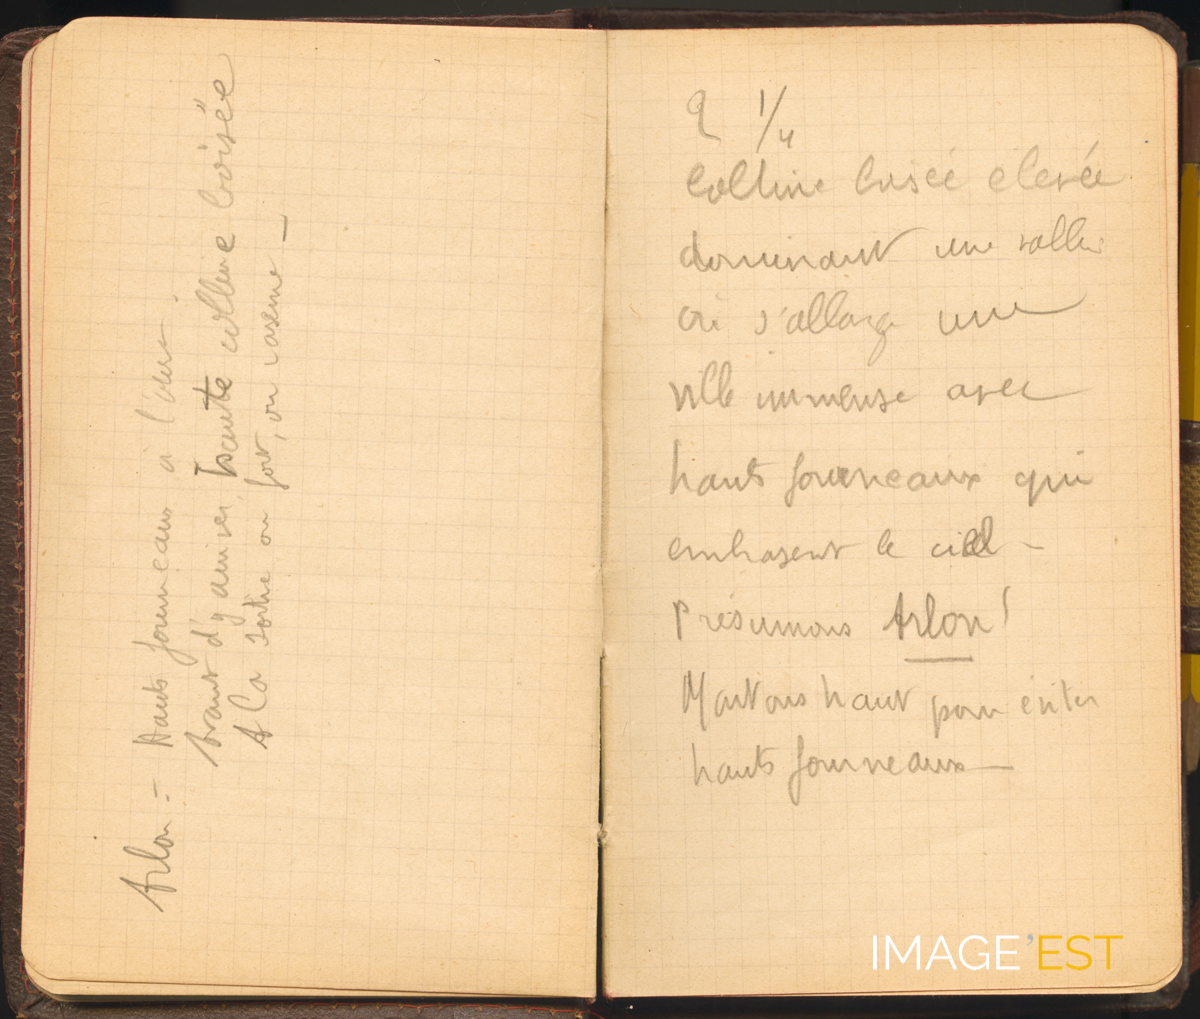 Arlon = Hauts fourneaux à l'ouest
Avant d'y arriver, haute colline boisée
A la sortie un fort, ou caserne —
9 1/4
Colline boisée élevée
dominant une vallée
où s'allonge une
ville immense avec
hauts fourneaux qui
embrasent le ciel -
Présumons Arlon !
Montons haut pour éviter
hauts fourneaux —
IMAGE'EST